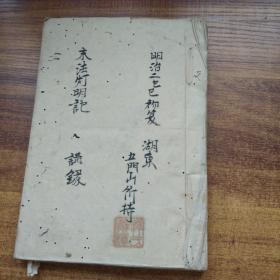 明治二己巳初夏 湖東
五門山所持
末法灯明記 講録